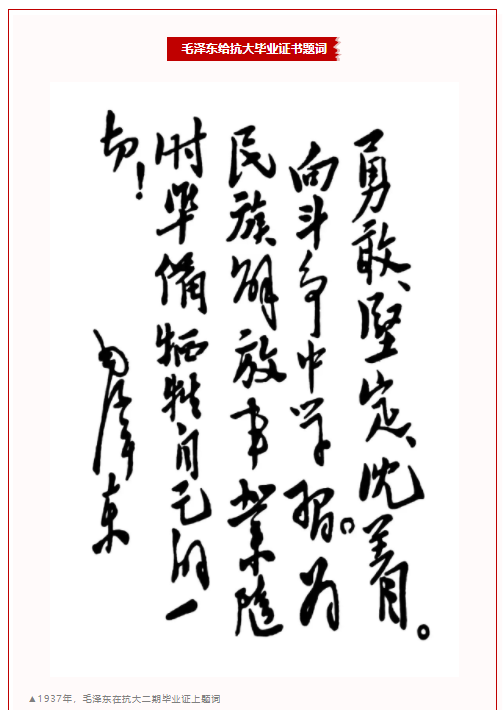 毛泽东给抗大毕业证书题词
勇敢、堅定、沈着。
向斗争中学習。为
民族解放事業隨
时準備牺牲自己的一
切！
毛泽东
▲1937年，毛泽东在抗大二期毕业证上题词